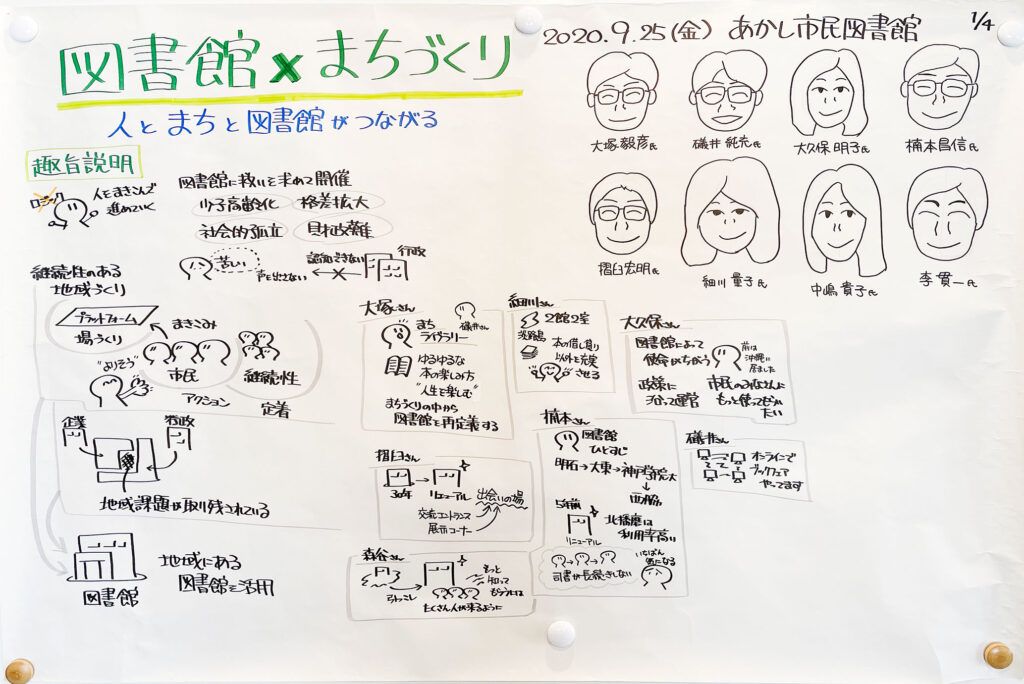 図書館×まちづくり
人とまちと図書館がつながる
2020.9.25(金) あかし市民図書館
1/4
大塚毅彦氏
磯井純充氏
大久保明子氏
楠本昌信氏
摺臼宏明氏
細川量子氏
中嶋貴子氏
李貫一氏
趣旨説明
ロジック
人をまきこんで
進めていく
図書館に救いを求めて開催
少子高齢化
格差拡大
社会的孤立
財政難
苦しい
声を出さない
認知できない
行政
継続性のある
地域づくり
プラットフォーム
場づくり
まきこみ
"よりそう"
市民
継続性
アクション
定着
企業
行政
地域課題が取り残されている
図書館
地域にある
図書館を活用
大塚さん
磯井さん
まち
ライブラリー
ゆるゆるな
本の楽しみ方
"人生を楽しむ"
まちづくりの中から
図書館を再定義する
細川さん
2館2室
淡路島
本の借し借り
以外を充実
させる
大久保さん
図書館によって
使命がちがう
前は
沖縄に
居ました
政策に
沿って運営
市民のみなさんに
もっと使ってもらい
たい
摺臼さん
30年
リニューアル
出会いの場
交流エントランス
展示コーナー
楠本さん
図書館
ひとすじ
明石→大東→神戸学院大
西脇
5年前
リニューアル
北播磨は
利用率高い
司書が長続きしない
いちばん
気になる
磯井さん
オンラインで
ブックフェア
やってます
森谷さん
もっと
知って
もらうには
たくさん人が来るように